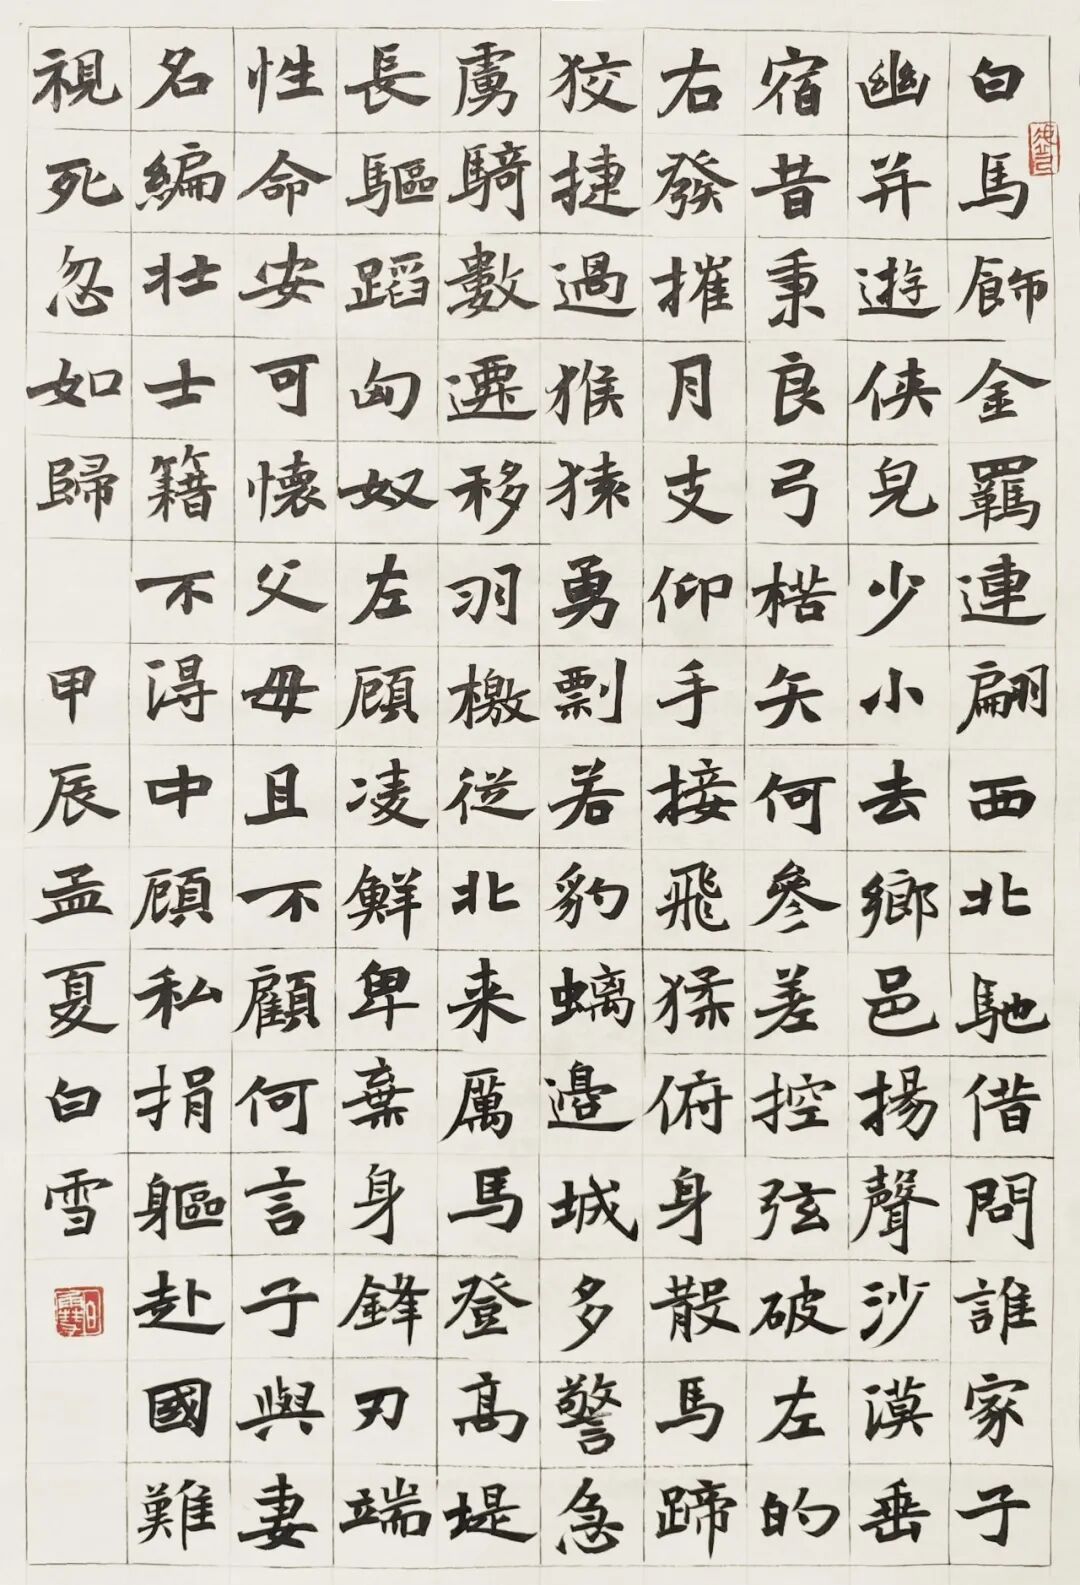 白馬飾金羈連翩西北馳借問誰家子
幽并遊俠兒少小去鄉邑揚聲沙漠垂
宿昔秉良弓楛矢何參差控弦破左的
右發摧月支仰手接飛猱俯身散馬蹄
狡捷過猴猿勇剽若豹螭邊城多警急
虜騎數遷移羽檄從北来厲馬登高堤
長驅蹈匈奴左顧凌鮮卑棄身鋒刃端
性命安可懷父母且不顧何言子與妻
名編壯士籍不得中顧私捐軀赴國難
視死忽如歸 甲辰孟夏白雪